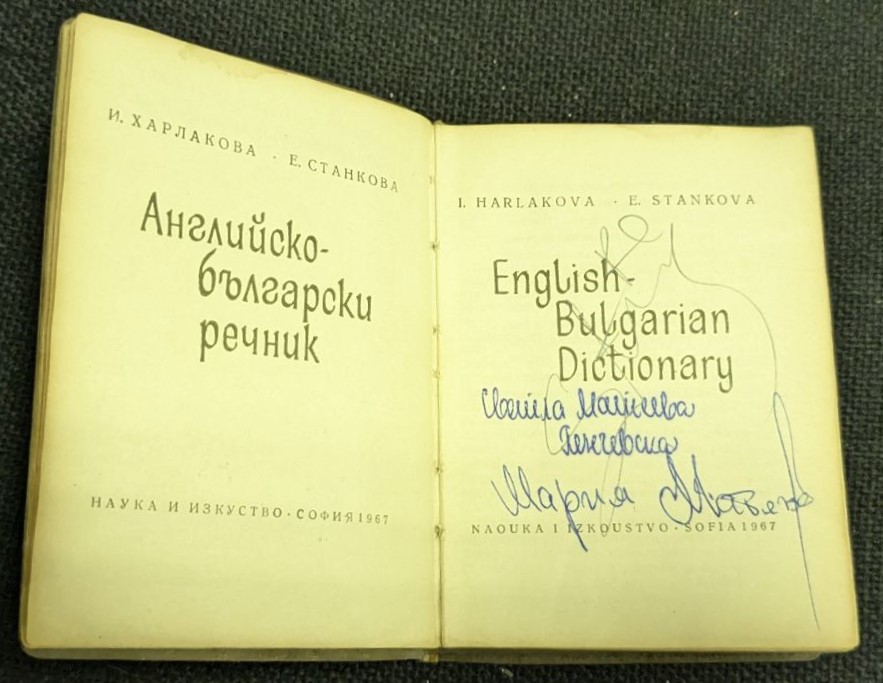 И. ХАРЛАКОВА · Е. СТАНКОВА
Английско-
български
речник
НАУКА И ИЗКУСТВО · СОФИЯ 1967
I. HARLAKOVA · E. STANKOVA
English-
Bulgarian
Dictionary
Мария
NAOUKA I IZKOUSTVO · SOFIA 1967